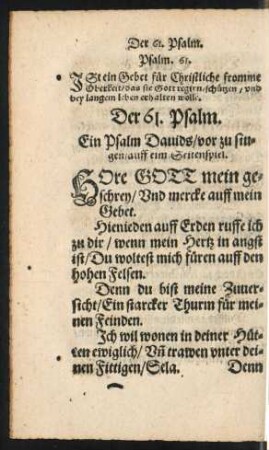 Der 61. Psalm.
Psalm. 61.
JSt ein Gebet für Christliche fromme
Oberkeit/das sie Gott regirn/schützen/ vnd
bey langem leben erhalten wolle.
Der 61. Psalm.
Ein Psalm Dauids/vor zu sin-
gen/auff eim Seitenspiel.
HOre GOTT mein ge-
schrey/ Vnd mercke auff mein
Gebet.
Hienieden auff Erden ruffe ich
zu dir/ wenn mein Hertz in angst
ist/Du woltest mich füren auff den
hohen Felsen.
Denn du bist meine Zuuer-
sicht/Ein starcker Thurm für mei-
nen Feinden.
Jch wil wonen in deiner Hüt-
ten ewiglich/ Vñ trawen vnter dei-
nen Fittigen/Sela. Denn